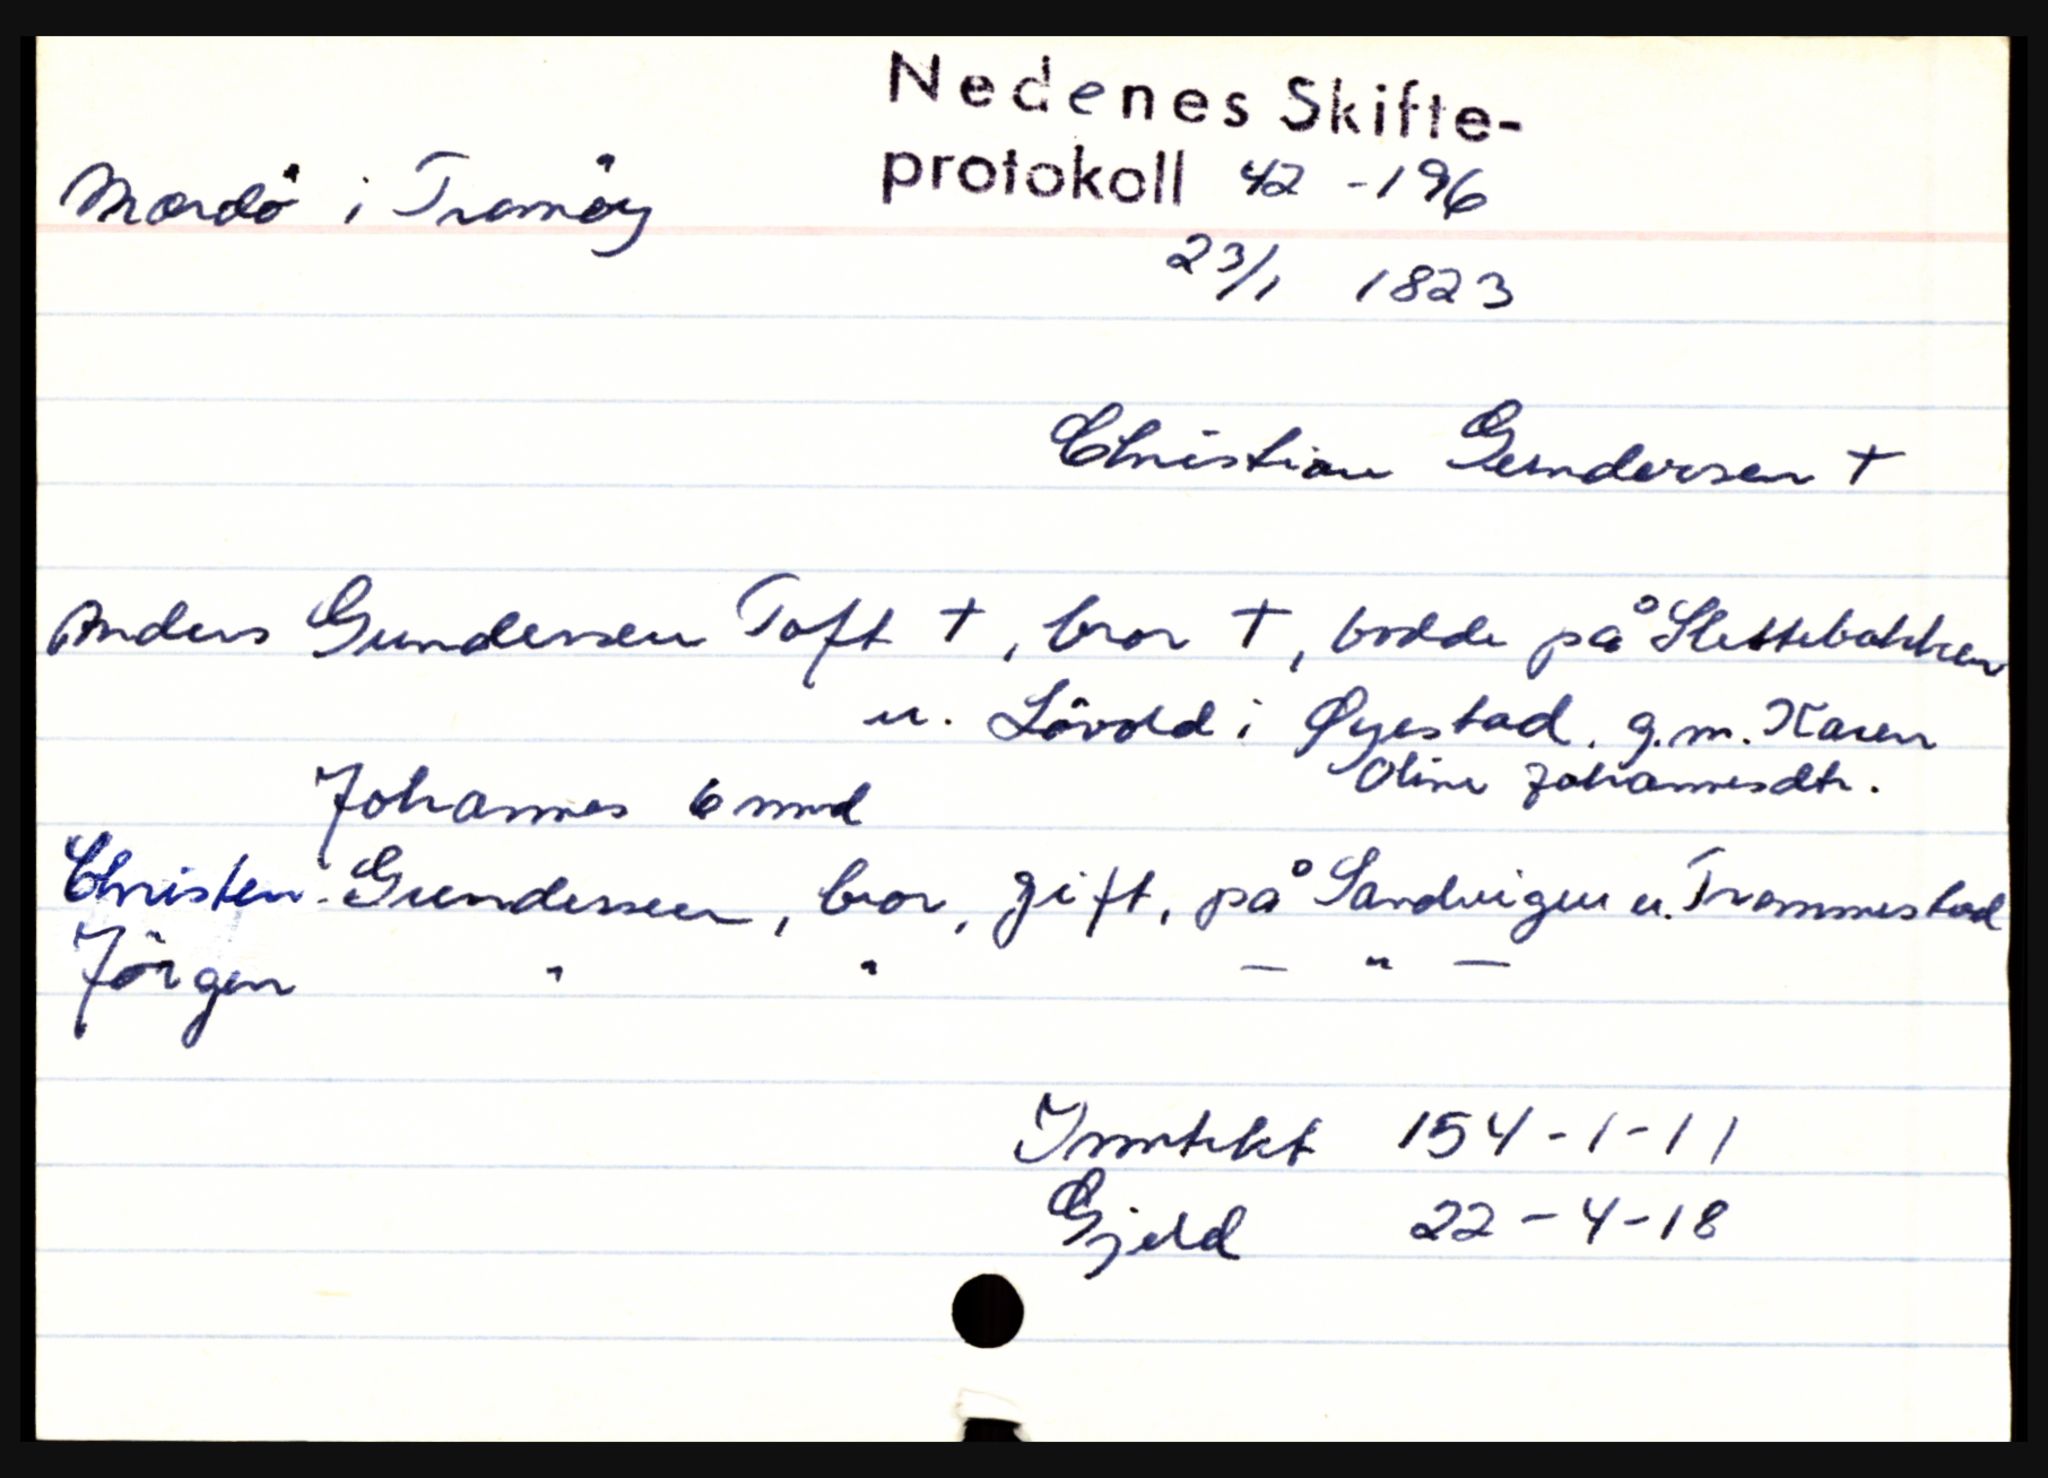 Nedenes Skifte-
Mærdö i Tromöy protokoll 42 - 196
23/1 1823
Christian Gundersen †
Anders Gundersen Toft †, bror †, bodde på Slettebakken
u. Lövold i Øyestad. g.m. Karen
Oline Johannesdtr.
Johannes 6 mnd
Christen Gundersen, bror, gift, på Sandvigen u. Trommestad
Jörgen " " — " —
Inntekt 154-1-11
Gjeld 22-4-18